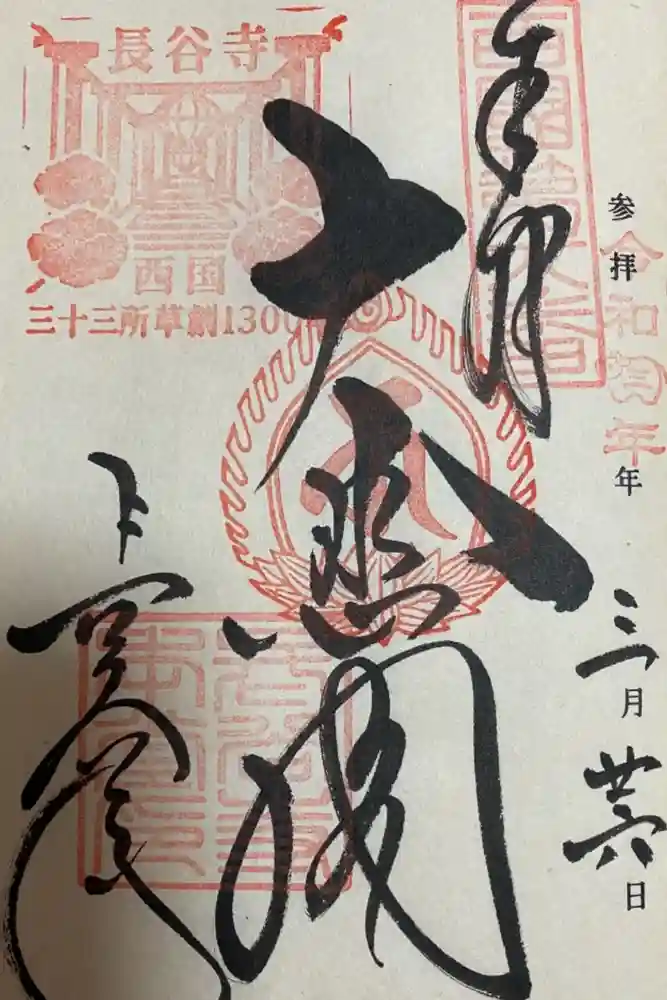 参拝
令和
年
年 三月 廿六日
奉拝
西国第八番
大悲閣
長谷寺
長谷寺
西国
三十三所草創1300